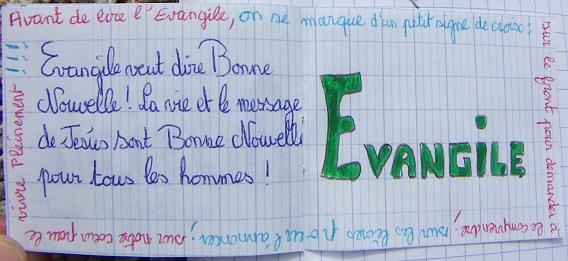 Avant de lire l'Evangile, on se marque d'un petit signe de croix :
sur le front pour demander à
le comprendre ; sur les lèvres pour l'annoncer ; sur notre coeur pour le
vivre pleinement !!!
Evangile veut dire Bonne
Nouvelle ! La vie et le message
de Jésus sont Bonne Nouvelle
pour tous les hommes !
EVANGILE